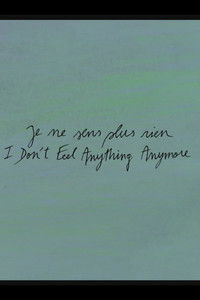 Je ne sens plus rien
I Don't Feel Anything Anymore